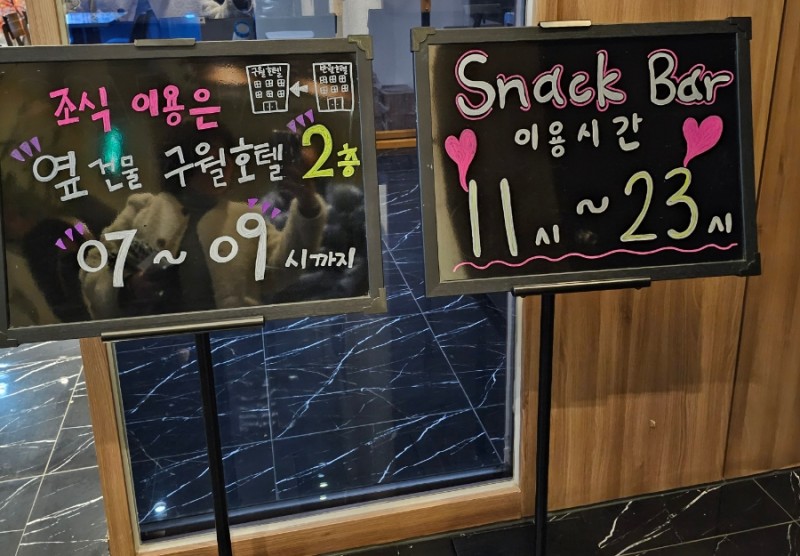 구월호텔
조식 이용은
옆 건물 구월호텔 2층
07~09시까지
Snack Bar
이용시간
11시~23시